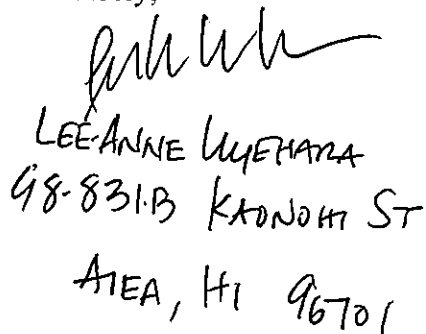 LEE-ANNE UYEHARA
98-831-B KAONOHI ST
AIEA, HI 96701